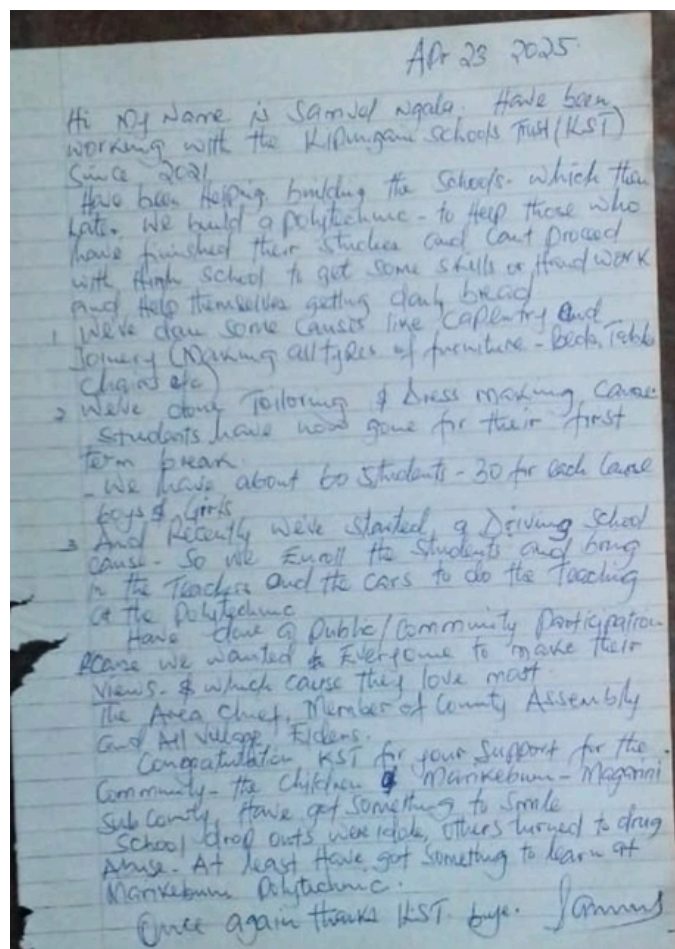 Apr 23 2025
Hi My Name is Samuel Ngala. Have been
working with the Kipungani Schools Trust (KST)
Since 2021
Have been Helping building the Schools. which then
Later We build a polytechnic - to Help those who
have finished their studies and Cant Proceed
with High School to get some skills or Hand work
and Help themselves getting daily bread
1 We've done some Causes like Capentry and
Joinery (Making all types of furniture - Beds, Table
Chairs etc)
2 We've done Tailoring & Dress making Cause.
Students have now gone for their first
term break.
- We have about 60 Students - 30 for each Cause
boys & Girls
3 And Recently We've started a Driving School
cause - So we Enroll the Students and bring
in the Teachers and the cars to do the Teaching
at the Polytechnic
Have done a Public/Community Participation
we wanted Everyone to make their
views - & which cause they love most.
The Area Chief, Member of County Assembly
and All Village Elders.
KST for your Support for the
Community - the Children Marikebuni - Magarini
Sub County, Have got something to Smile
School drop outs were idole, others turned to drug
Abuse. At least Have got something to learn at
Marikebuni Polytechnic.
Once again thanks KST. bye.